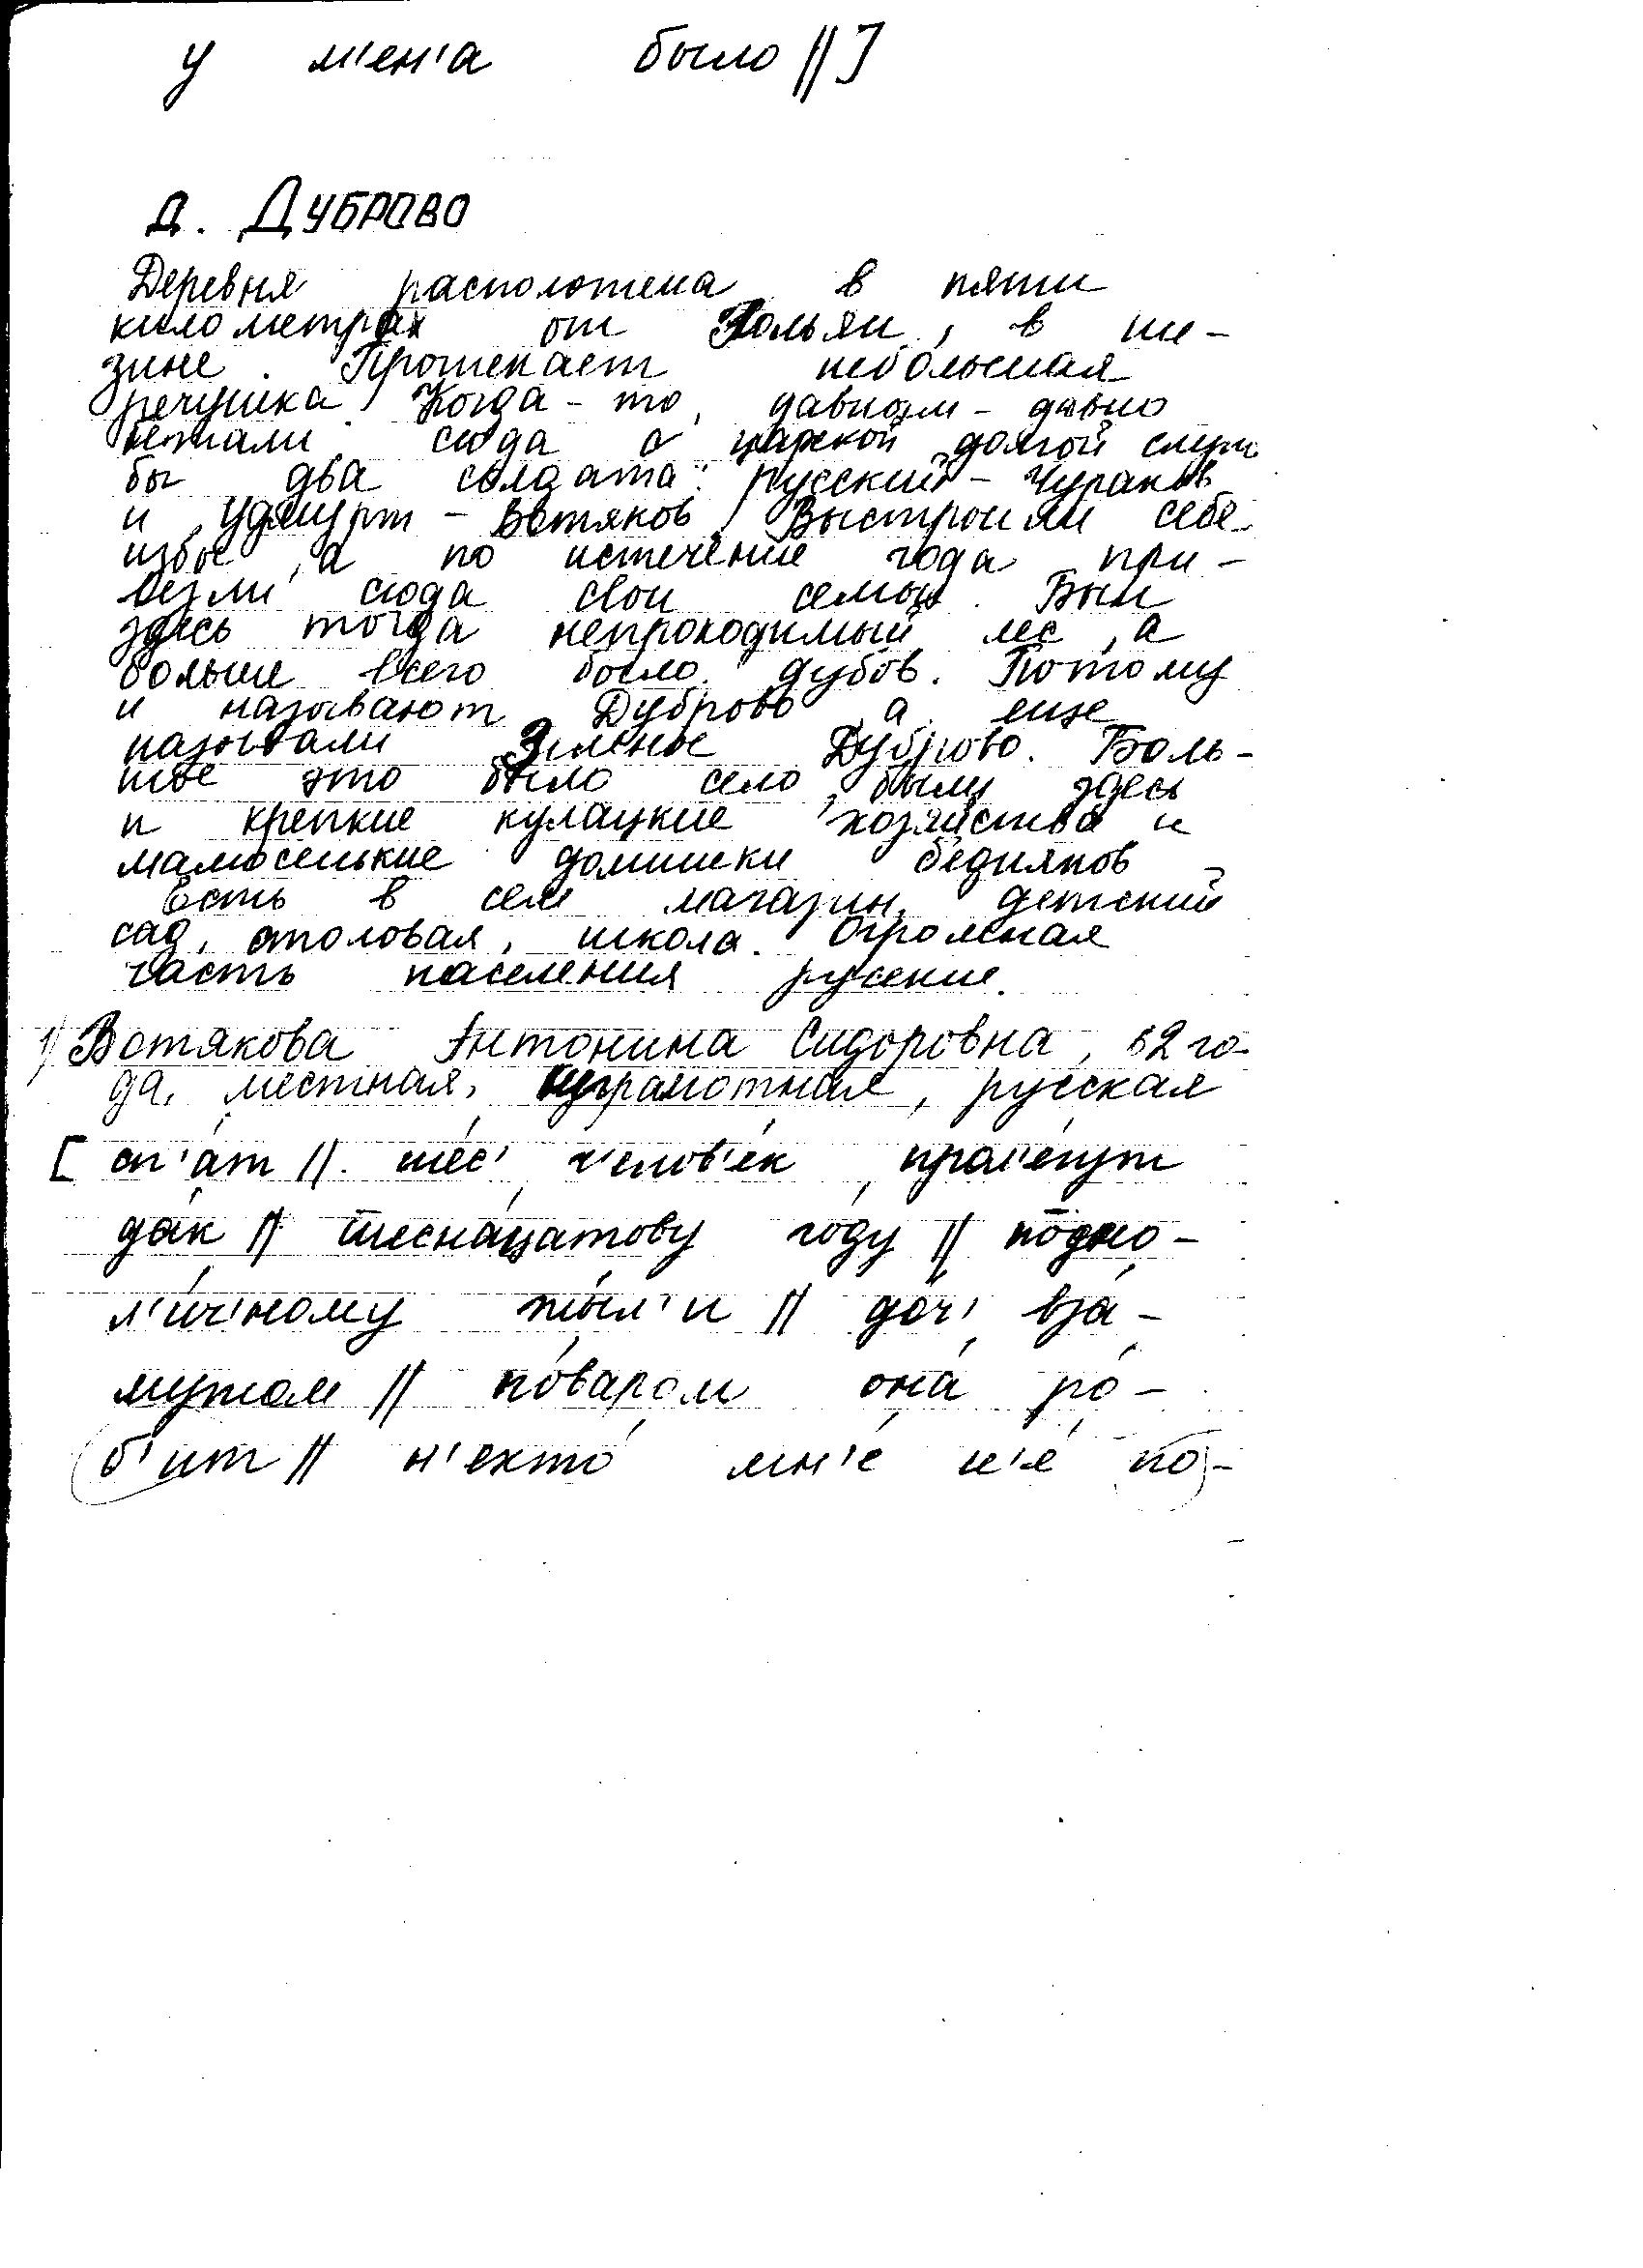 у м'ен'а было //]
д. ДУБРОВО
Деревня расположена в пяти
километрах от Гольян, в ни-
зине. Протекает небольшая
речушка. Когда-то, давным-давно
бежали сюда с царской долгой служ
бы два солдата: русский - Чураков
и удмурт - Вотяков. Выстроили себе
избы, а по истечение года при-
везли сюда свои семьи. Был
здесь тогда непроходимый лес, а
больше всего было дубов. Потому
и называют Дуброво, а еще
называли Зеленое Дуброво. Боль-
шое это было село, были здесь
и крепкие кулацкие хозяйства и
малюсенькие домишки бедняков
Есть в селе магазин, детский
сад, столовая, школа. Огромная
часть населения русские.
1) Вотякова Антонина Сидоровна, 62 го-
да, местная, неграмотная, русская
[ сп'а́т //. ше́с' ч'елов'е́к
да́к // шесна́цатову го́ду // по́дно-
л'и́ч'ному жы́л'и // до́ч' вза́-
мужом // по́варом она́ ро́-
б'ит // н'ехто́ мн'е́ н'е́ по-